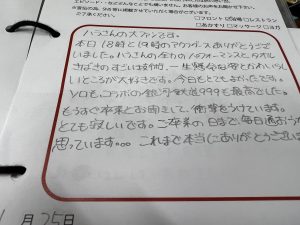 エピソード・などなんでも構いません。お名前のお声をお聞かせ下さい。
ご了承ください。
□フロント □宿泊 □レストラン
□あかすり □マッサージ □ヨガ
ハラさんの大ファンです。
本日18時と19時のアウフグースありがとうござ
いました。ハラさんの全力のパフォーマンスとタオル
さばきのすごいは勿論、一生懸命な姿とかわいら
しいところが大好きです。今日もとてもよかったです。
YOもコラボの銀河鉄道999も最高でした。
もうすぐ卒業とお聞きして、衝撃をうけています。
とても寂しいです。ご卒業の日まで毎日通おうか
思っています。。。 これまで本当にありがとうござい
月25日